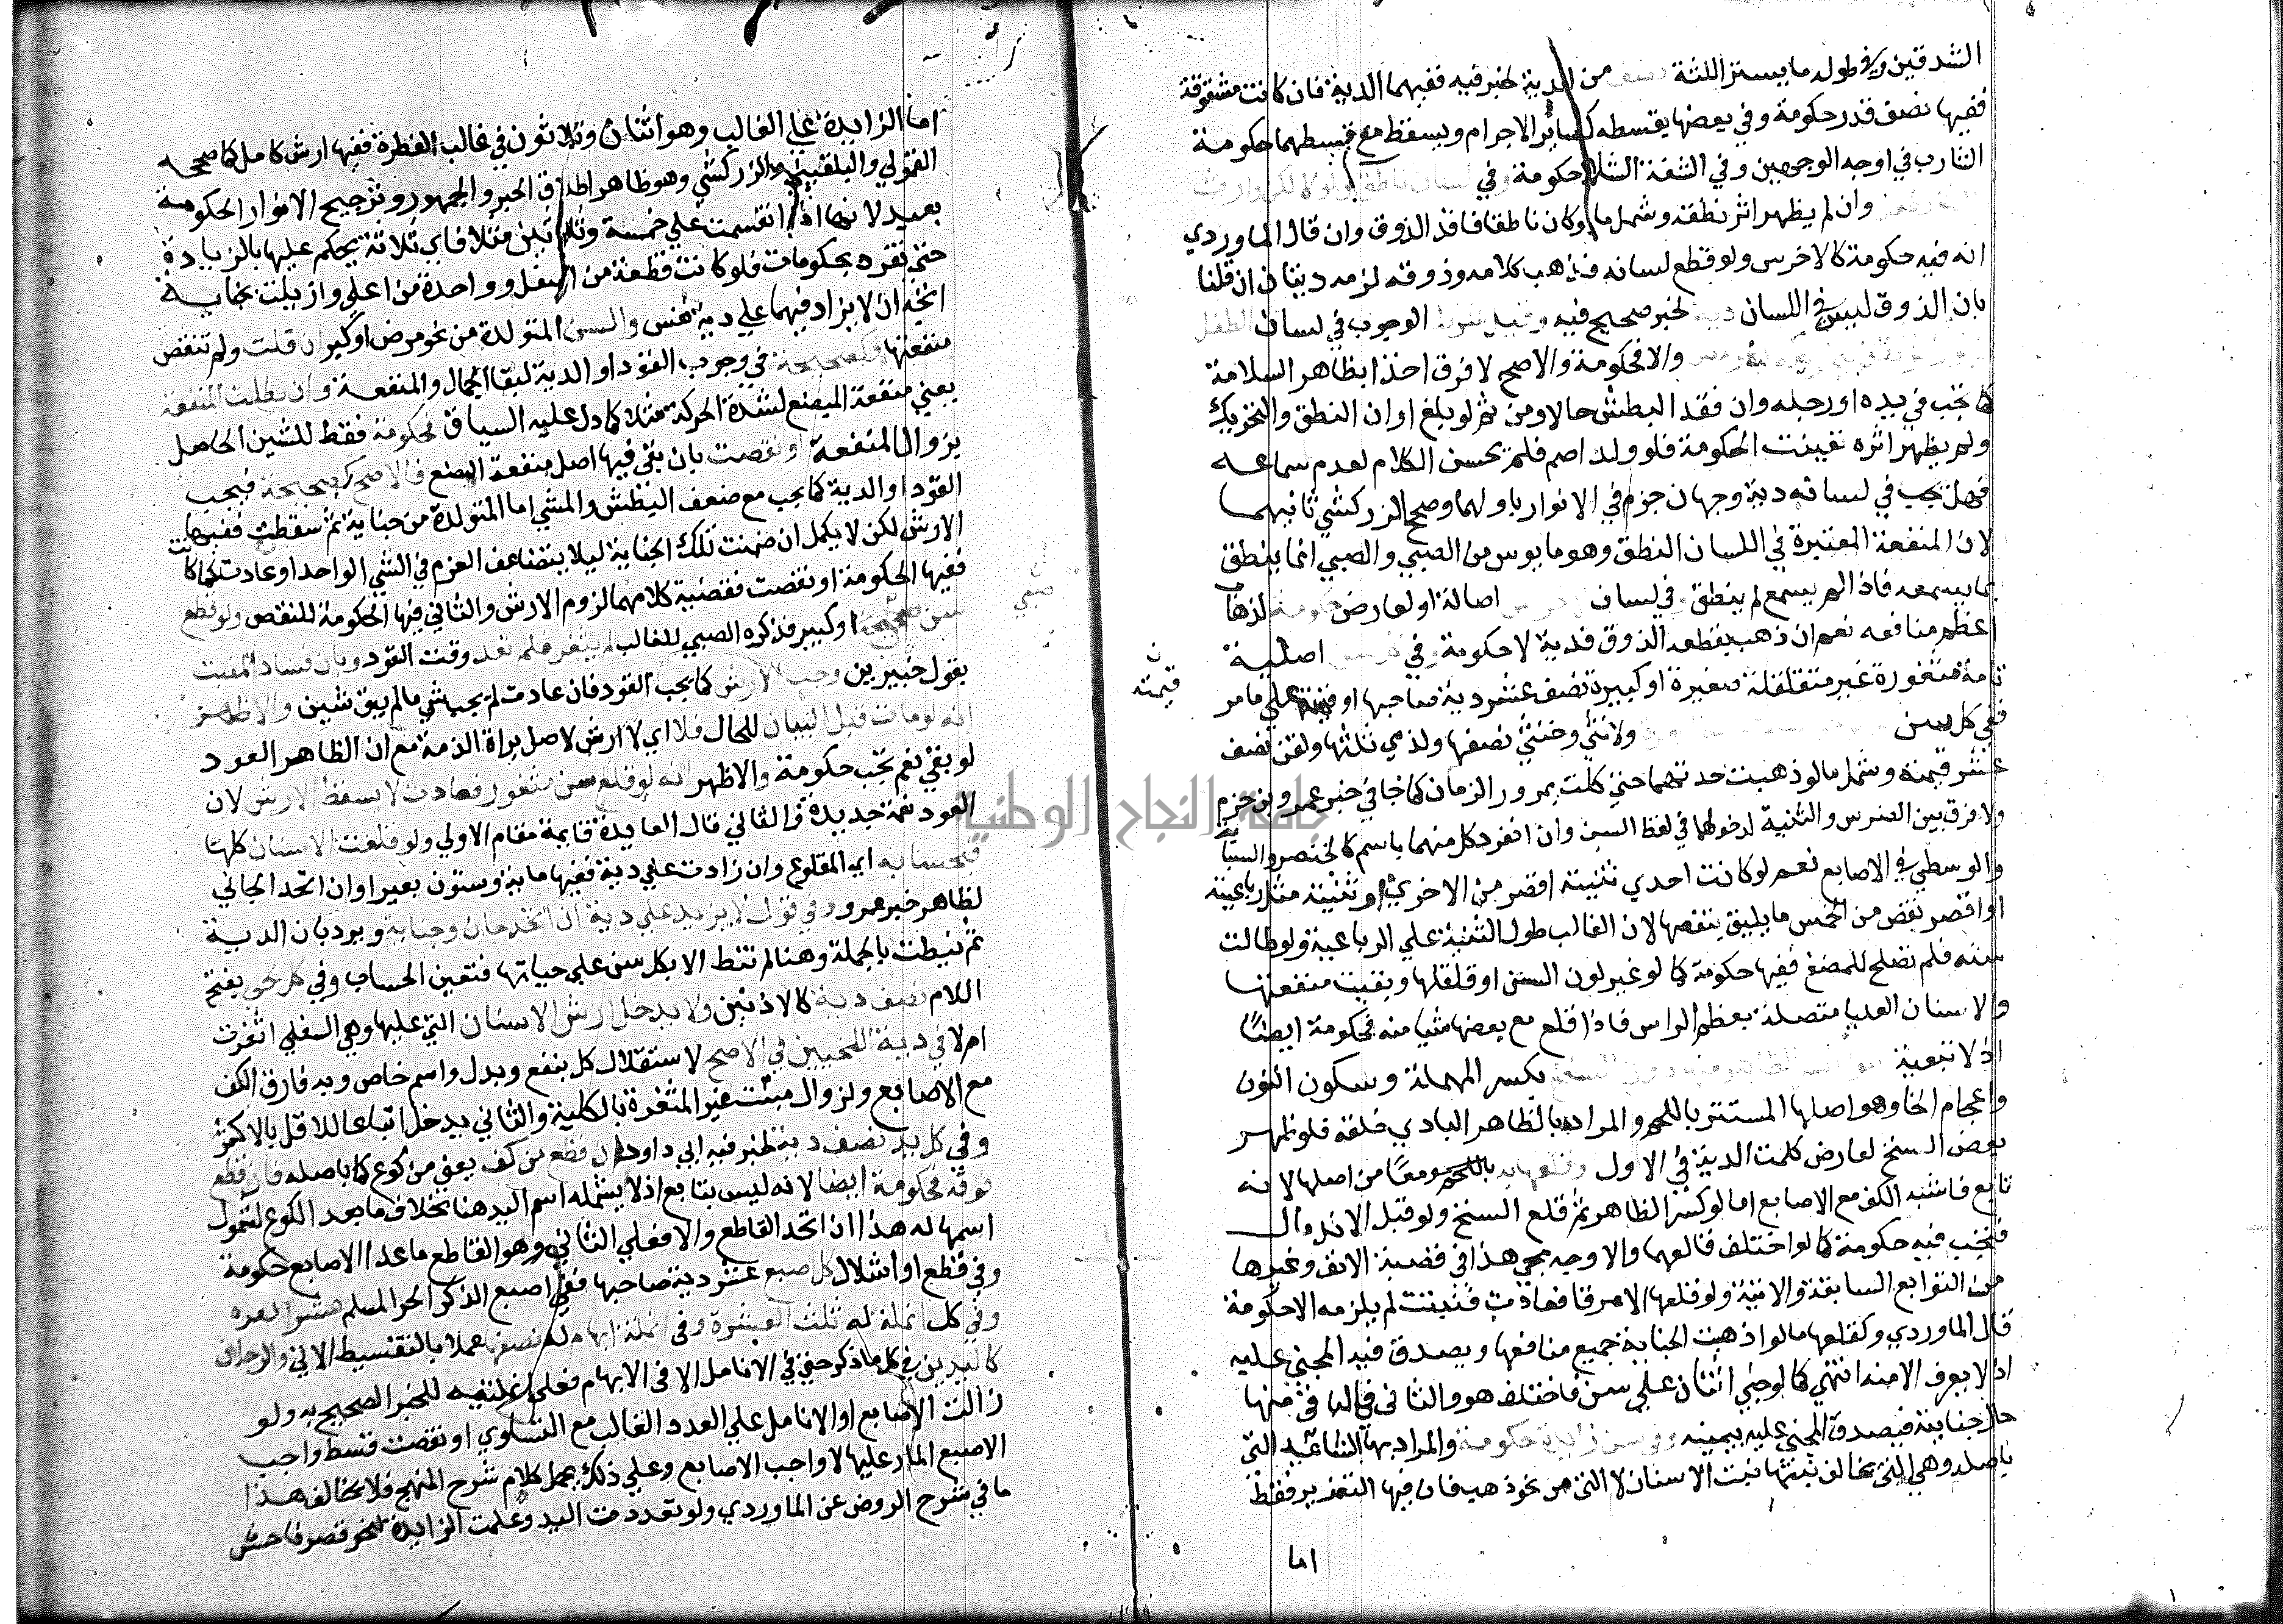 الشدقين وفي طوله ما يستر اللثة من الدية لخبر فيه ففيهما الدية فان كانت مشقوقة
ففيها نصف قدر حكومة وفي بعضها بقسطه كسائر الاجرام ويسقط مع قسطهما حكومة
الشارب في اوجه الوجهين وفي الشفة الشلا حكومة وفي لسان ناطق ولو لالكن وارت
وان لم يظهر اثر نطقه وشمل ما لو كان ناطقا فاقد الذوق وان قال الماوردي
انه فيه حكومة كالاخرس ولو قطع لسانه فذهب كلامه وذوقه لزمه ديتان ان قلنا
بان الذوق ليس في اللسان دية لخبر صحيح فيه وقيل شرط الوجوب في لسان الطفل
والا فحكومة والاصح لا فرق اخذا بظاهر السلامة
كما تجب في يده او رجله وان فقد البطش حالا ومن ثم لو بلغ اوان النطق والتحريك
ولم يظهر اثره تعينت الحكومة فلو ولد اصم فلم يحسن الكلام لعدم سماعه
فهل تجب في لسانه دية وجهان جزم في الانوار باولهما وصحح الزركشي ثانيهما
لان المنفعة المعتبرة في اللسان النطق وهو مايوس من الصبي والصبي انما ينطق
بما يسمعه فاذا لم يسمع لم ينطق وفي لسان اصالة او لعارض حكومة لذهاب
اعظم منافعه نعم ان ذهب بقطعه الذوق فدية لا حكومة وفي اصلية
تامة مثغورة غير متقلقلة صغيرة او كبيرة نصف عشر دية صاحبها او قيمته علي ما مر
قيمته
ففي كل سن ولانثي وخنثي نصفها ولذمي ثلثها ولقن نصف
عشر قيمته وشمل ما لو ذهبت حدتهما حتي كلت بمرور الزمان كما جا في خبر عمرو بن حزم
ولا فرق بين الضرس والثنية لدخولهما في لفظ السن وان انفرد كل منهما باسم كالخنصر والسبابة
والوسطي في الاصابع نعم لو كانت احدي ثنيته اقصر من الاخري او ثنيته مثل رباعيته
او اقصر نقص من الخمس ما يليق بنقصها لان الغالب طول الثنية علي الرباعية ولو طالت
سنه فلم تصلح للمضغ ففيها حكومة كما لو غير لون السن او قلقلها وبقيت منفعتها
والاسنان العليا متصلة بعظم الراس فاذا قلع مع بعضها شيا منه فحكومة ايضا
اذ لا تبعية بكسر المهملة وسكون النون
واعجام الخا وهو اصلها المستتر باللحم والمراد بالظاهر البادي خلقة فلو ظهر
بعض السنخ لعارض كلمت الدية في الاول وقلعها به باللحم ومعا من اصلها لانه
تابع فاشبه الكف مع الاصابع اما لو كسر الظاهر ثم قلع السنخ ولو قبل الاندمال
فتجب فيه حكومة كما لو اختلف قالعهما والاوجه مجي هذا في قضية الانف وغيرها
من التوابع السابقة والاتية ولو قلعها الا عرقا فعادت فثبتت لم يلزمه الا حكومة
قال الماوردي وكقلعها ما لو اذهبت الجناية جميع منافعها ويصدق فيه المجني عليه
اذ لا يعرف الا منه انتهي كما لو جني اثنان علي سن فاختلف هو والثاني في الباقي منها
حال جنايته فيصدق المجني عليه بيمينه وفي سن زايدة حكومة والمراد بها الشاغية التي
باصله وهي التي تخالف نبتتها نبت الاسنان لا التي من نحو ذهب فان فيها التعزير فقط
اما
اما الزايدة علي الغالب وهو اثنان وثلاثون في غالب الفطرة ففيها ارش كامل كما صححه
القمولي والبلقيني والزركشي وهو ظاهر اطلاق الخبر والجمهور وترجيح الانوار الحكومة
بعيد لانها اذا انقسمت علي خمسة وثلاثين مثلا فاي ثلاثة يحكم عليها بالزيادة
حتي تفرد بحكومات فلو كانت قطعة من اسفل وواحدة من اعلي وازيلت بجناية
اتجه ان لا يزاد فيهما علي دية ضرس والسن المتولدة من نحو مرض او كبر ان قلت ولم تنقص
منفعتها فكصحيحة في وجوب القود او الدية لبقا الجمال والمنفعة وان بطلت المنفعة
يعني منفعة المضغ لشدة الحركة مثلا كما دل عليه السياق فحكومة فقط للشين الحاصل
بزوال المنفعة او نقصت بان بقي فيها اصل منفعة المضغ فالاصح كصحيحة فيجب
القود او الدية كما يجب مع ضعف البطش والمشي اما المتولدة من جناية ثم سقطت ففيها
الارش لكن لا يكمل ان ضمنت تلك الجناية ليلا يتضاعف الغرم في الشي الواحد او عادت كما كانت
ففيها الحكومة او نقصت فقضية كلامهما لزوم الارش والثاني فيها الحكومة للنقص ولو قطع
سن او كبير فذكره الصبي للغالب لم يثغر فلم تعد وقت العود وبان فساد المنبت
بقول خبيرين وجب الارش كما يجب القود فان عادت لم يجب شي ما لم يبق شين والاظهر
انه لو مات قبل البيان للحال فلا اي لا ارش لاصل براة الذمة مع ان الظاهر العود
لو بقي نعم تجب حكومة والاظهر انه لو قلع سن مثغور فعادت لا يسقط الارش لان
العود نعمة جديدة والثاني قال العايدة قايمة مقام الاولي ولو قلعت الاسنان كلها
فبحسابه اي المقلوع وان زادت علي دية ففيها ماية وستون بعيرا وان اتحد الجاني
لظاهر خبر عمرو وفي قول لا يزيد علي دية ان اتحد جان وجناية ويرد بان الدية
ثم نيطت بالجملة وهنا لم تنط الا بكل سن علي حيالها فتعين الحساب وفي كل لحي بفتح
اللام نصف دية كالاذنين ولا يدخل ارش الاسنان التي عليها وهي السفلي اثغرت
ام لا في دية اللحيين في الاصح لاستقلال كل بنفع وبدل واسم خاص وبه فارق الكف
مع الاصابع ولزوال منبت غير المثغرة بالكلية والثاني يدخل اتباعا للاقل بالاكثر
وفي كل يد نصف دية لخبر فيه ابي داود ان قطع من كف يعني من كوع كما باصله فان قطع
فوقه فحكومة ايضا لانه ليس بتابع اذ لا يشمله اسم اليد هنا بخلاف ما بعد الكوع لشمول
اسمها له هذا ان اتحد القاطع والا فعلي الثاني وهو القاطع ما عدا الاصابع حكومة
وفي قطع او اشلال كل اصبع عشر دية صاحبها ففي اصبع الذكر الحر المسلم عشر
وفي كل انملة له ثلث العشرة وفي انملة ابهام له نصفها عملا بالتقسيط الاتي والرجلان
كاليدين في كل ما ذكر حتي في الانامل الا في الابهام فعلي انملتيه للخبر الصحيح به ولو
زالت الاصابع او الانامل علي العدد الغالب مع التساوي او نقصت قسط واجب
الاصبع المار عليها لا واجب الاصابع وعلي ذلك يحمل كلام شرح المنهج فلا يخالف هذا
ما في شرح الروض عن الماوردي ولو تعددت اليد وعلمت الزايدة لنحو قصر فاحش